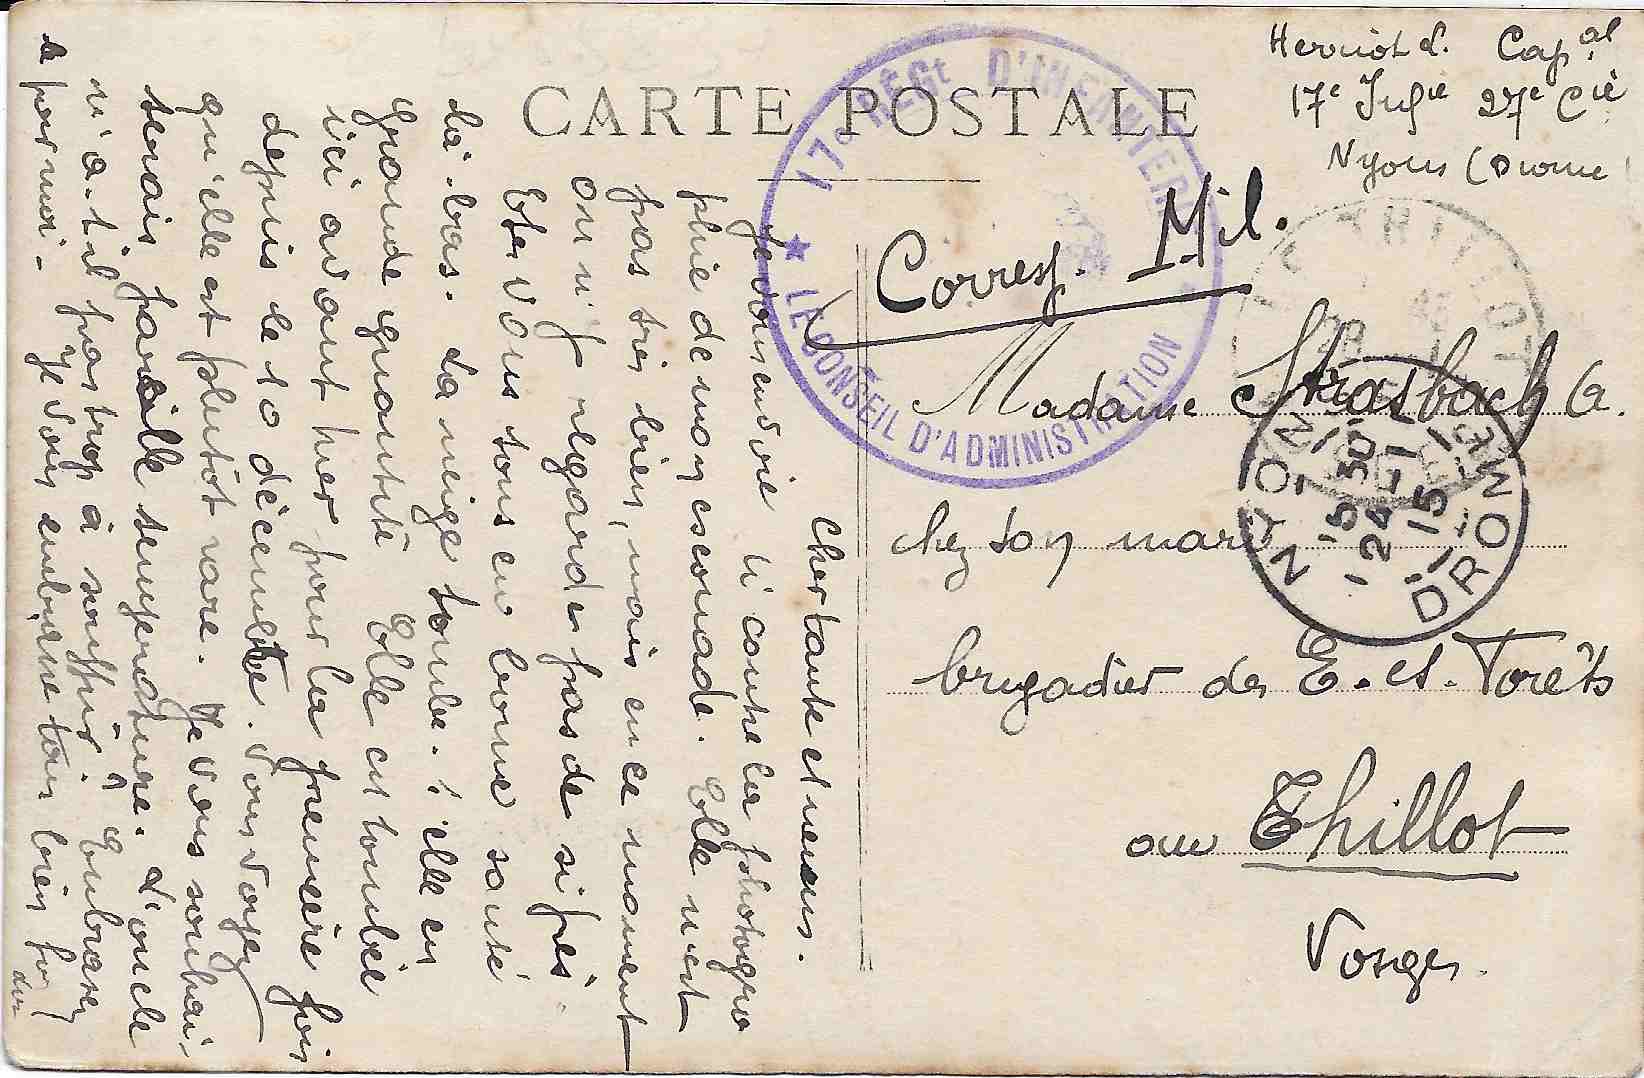 CARTE POSTALE
Herriot d. Cap^al
17e Infie 27e Cie
Nyons (Drome
17e RÉGt D'INFANTERIE
★ LE CONSEIL D'ADMINISTRATION
Corresp. Mil.
LE THILLOT
NYONS
15 30
24 -1
15
DROME
Madame Strasbach G.
chez son mari
brigadier des E. et Forêts
au Thillot
Vosges.
Cher tante et neveus.
Je vous envoie ci contre la photogra
phie de mon escouade. Elle n'est
pas très bien, mais en ce moment
on n'y regarde pas de si près.
Etes vous tous en bonne santé
là-bas. La neige tombe-t'elle en
grande quantité Elle est tombée
ici avant hier pour la première fois
depuis le 10 décembre. Vous voyez
qu'elle est plutôt rare. Je vous souhai-
terais pareille température. L'oncle
n'a-t-il pas trop à souffrir? Embrassez
le pour moi - Je vous embrasse tous bien fo